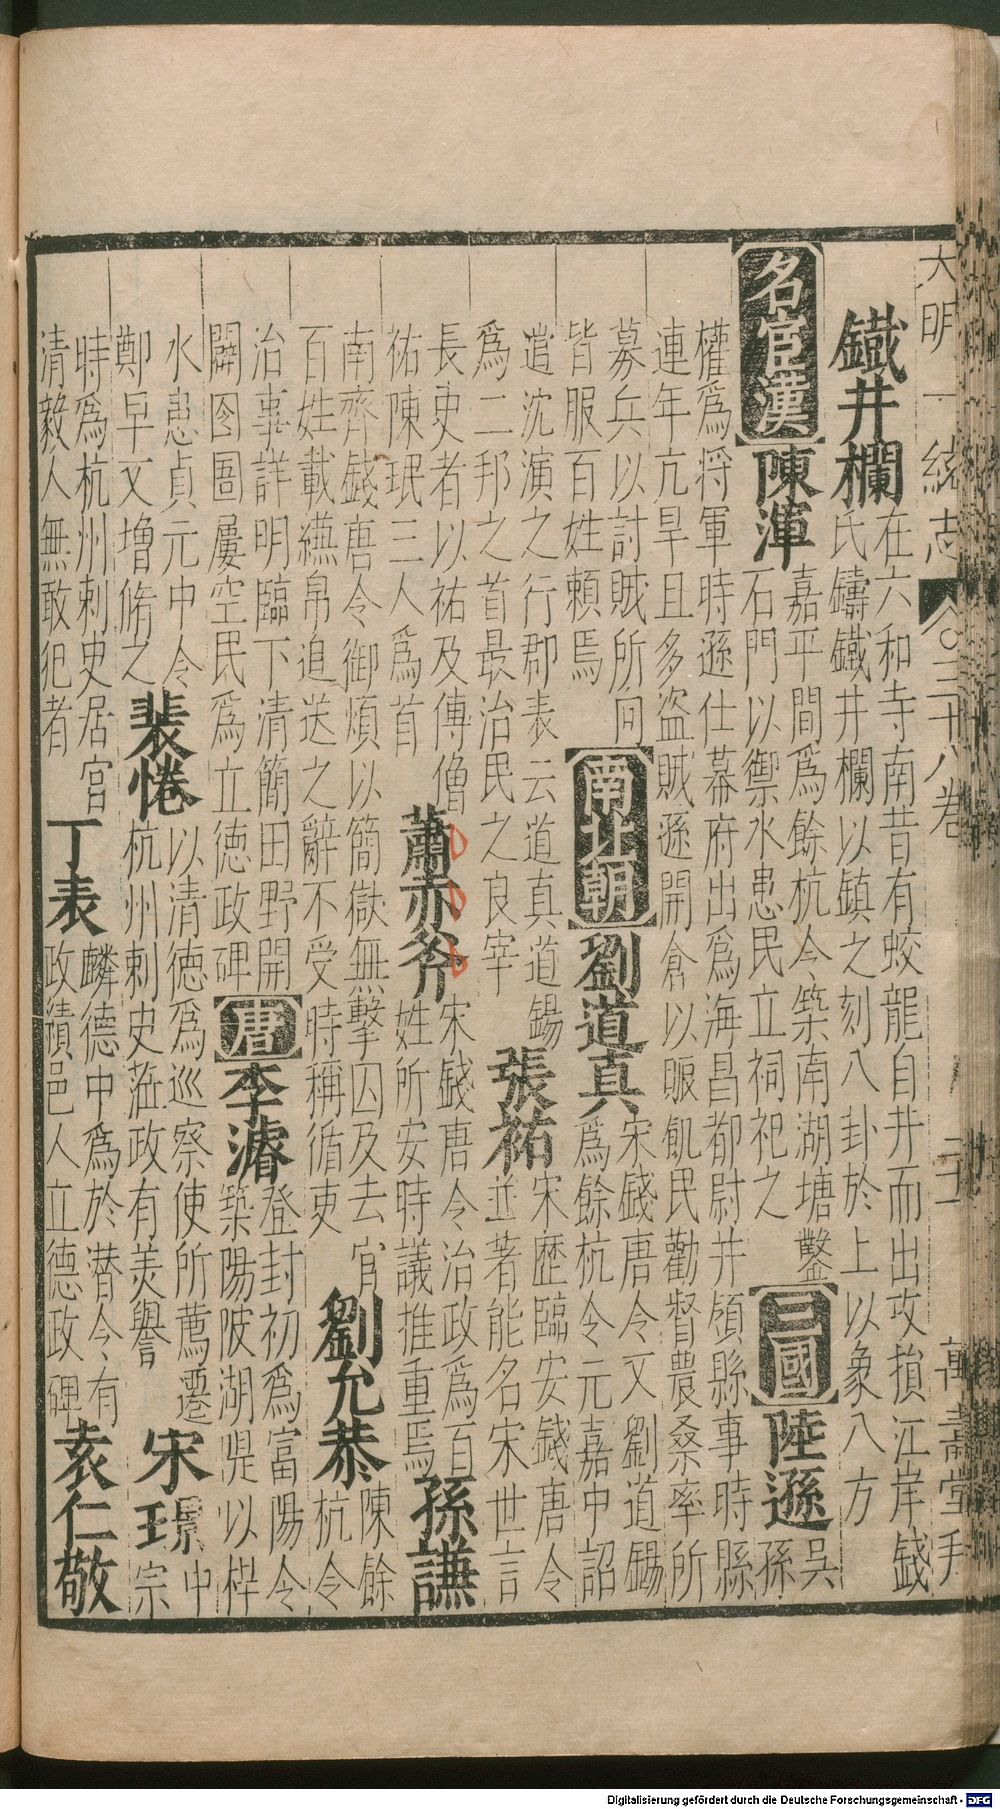 大明一統志 三十八卷 二十一 萬壽堂刊
鐵井欄 在六和寺南昔有蛟龍自井而出攻損江岸錢
氏鑄鐵井欄以鎮之刻八卦於上以象八方
名宦漢陳渾 嘉平間爲餘杭令築南湖塘鑿
石門以禦水患民立祠祀之 三國 陸遜 吳
孫
權爲將軍時遜仕幕府出爲海昌都尉并領縣事時縣
連年亢旱且多盜賊遜開倉以賑飢民勸督農桑率所
募兵以討賊所向
皆服百姓賴焉 南北朝 劉道真 宋錢唐令又劉道錫
爲餘杭令元嘉中詔
遣沈演之行郡表云道真道錫
爲二邦之首最治民之良宰 張祐 宋歷臨安錢唐令
並著能名宋世言
長史者以祐及傅僧
祐陳珉三人爲首 蕭赤斧 宋錢唐令治政爲百
姓所安時議推重焉 孫謙
南齊錢唐令御煩以簡獄無擊囚及去官
百姓載縑帛追送之辭不受時稱循吏 劉允恭 陳餘
杭令
治事詳明臨下清簡田野開
闢囹圄屢空民爲立德政碑 唐 李濬 登封初爲富陽令
築陽陂湖隄以捍
水患貞元中令
鄭早又增脩之 裴惓 以清德爲巡察使所薦遷
杭州刺史蒞政有美譽 宋璟 中
宗
時爲杭州刺史居官
清毅人無敢犯者 丁表 麟德中爲於潜令有
政績邑人立德政碑 袁仁敬
Digitalisierung gefördert durch die Deutsche Forschungsgemeinschaft - DFG